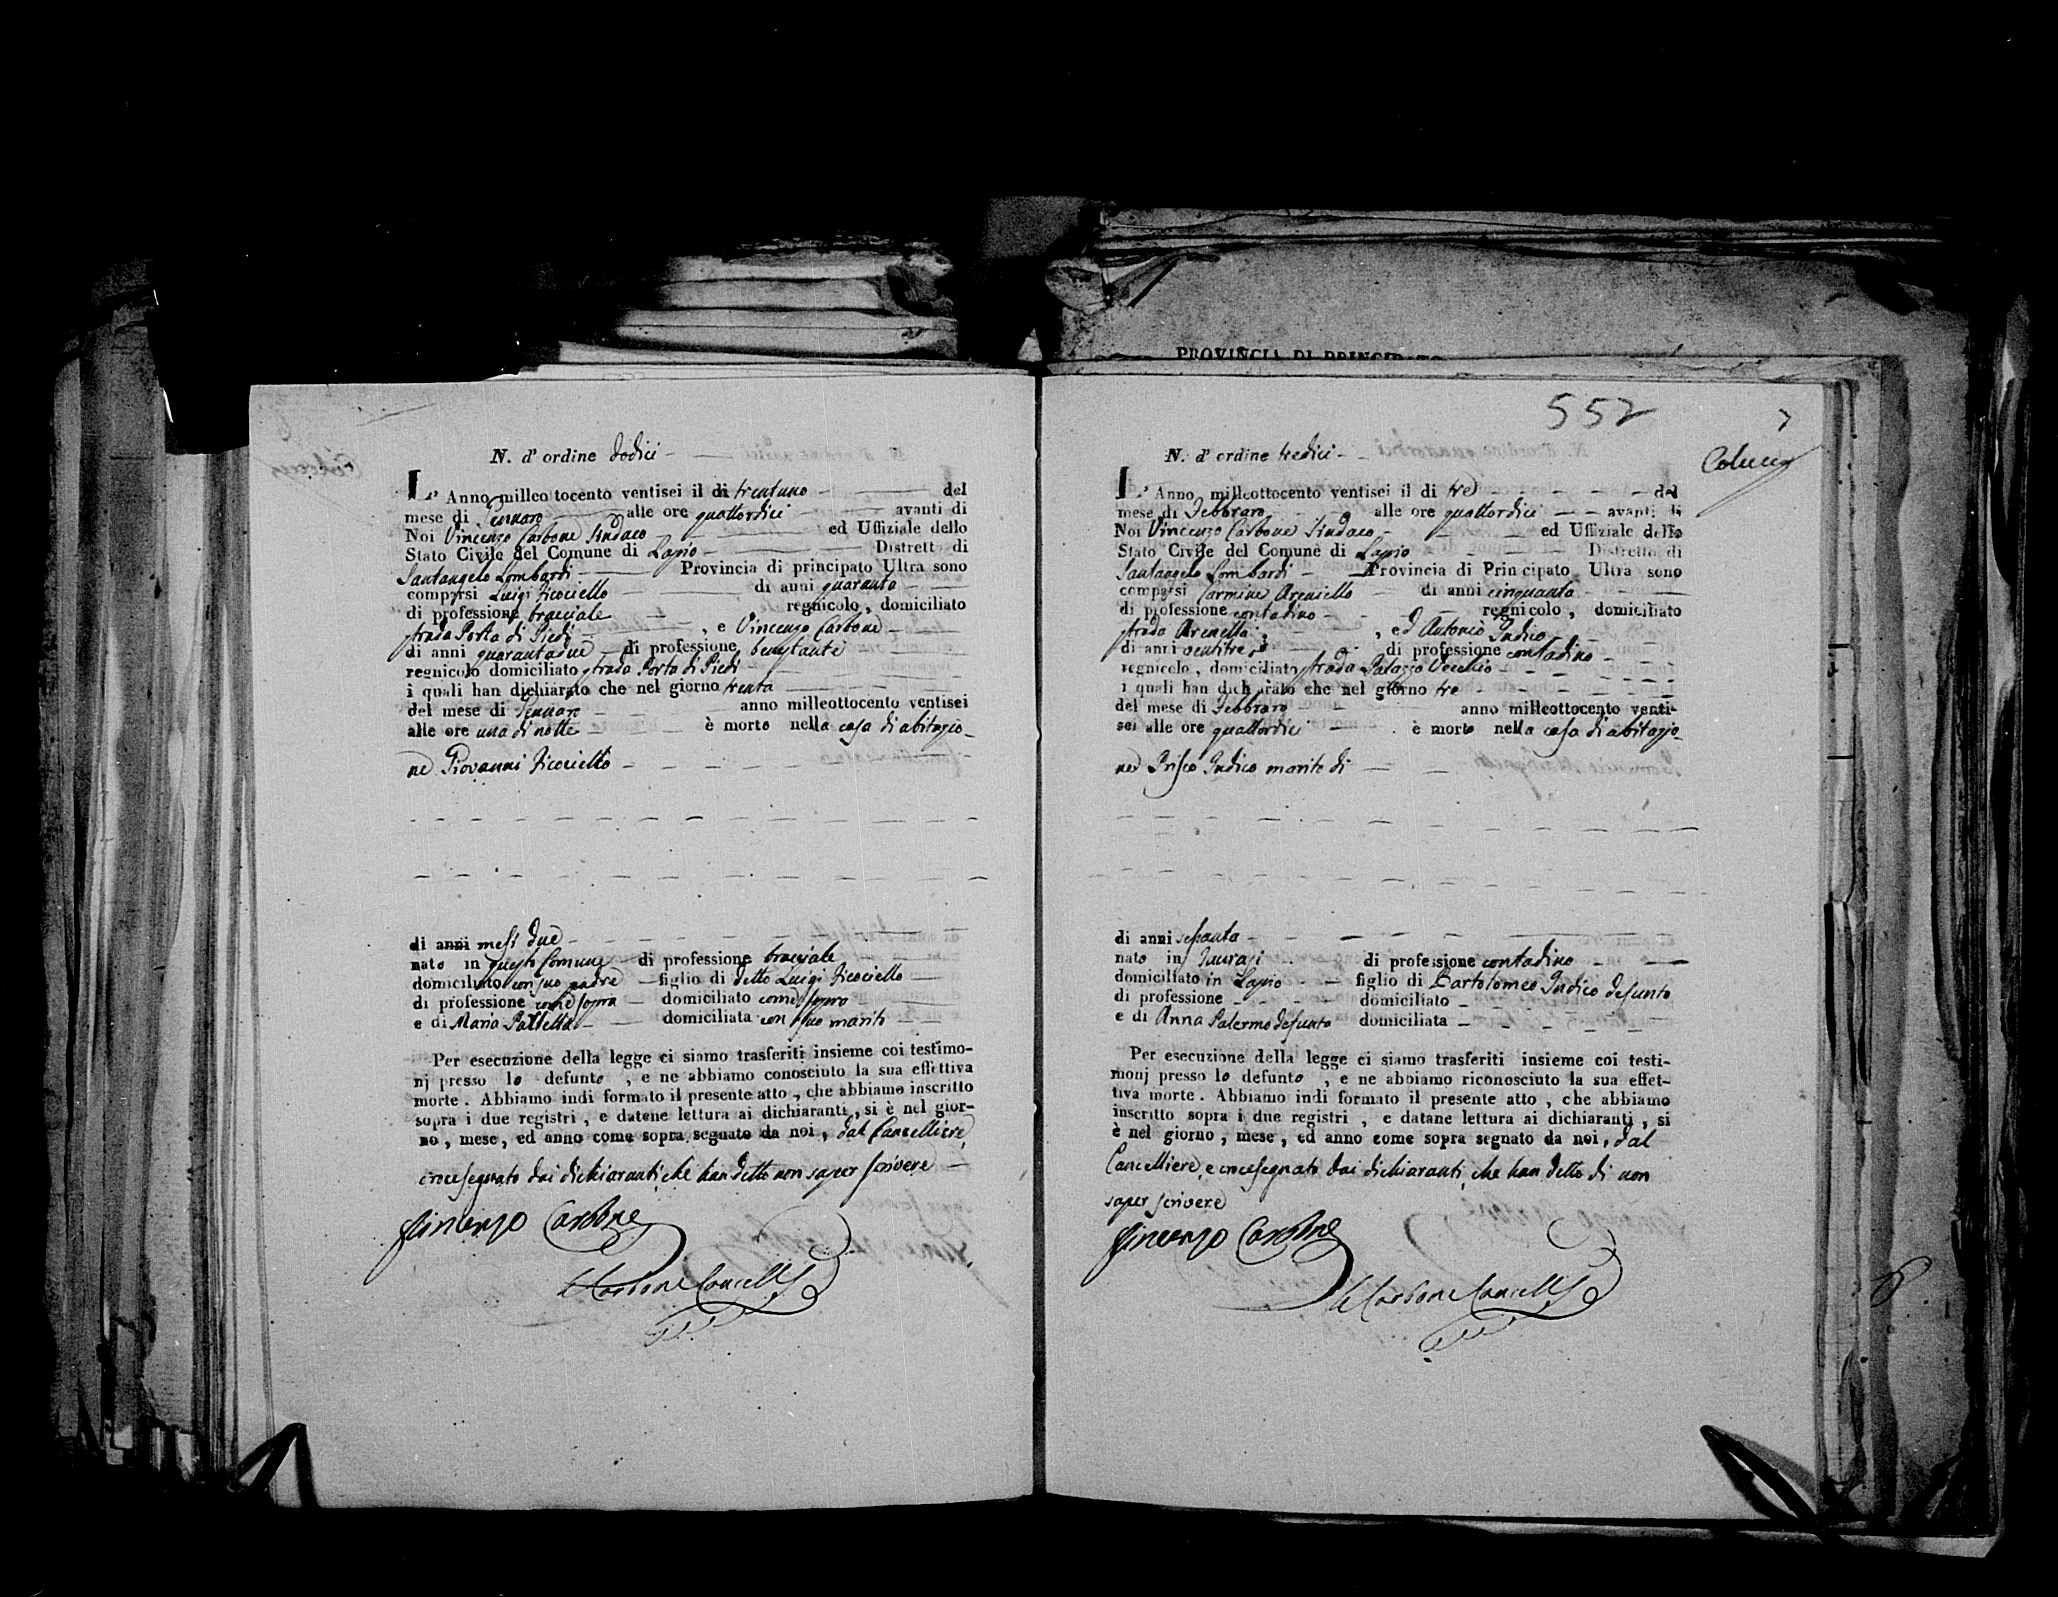 PROVINCIA DI PRINCIPATO
N. d' ordine dodici
L' Anno milleo tocento ventisei il di trentuno del
mese di Gennaro alle ore quattordici avanti di
Noi Vincenzo Carbone Sindaco ed Uffiziale dello
Stato Civile del Comune di Lapio Distrett di
Santangelo Lombardi Provincia di principato Ultra sono
comparsi Luigi Ficociello di anni quaranta
di professione bracciale regnicolo, domiciliato
strada Porta di Piedi, e Vincenzo Carbone
di anni quarantadue di professione benestante
regnicolo domiciliato strada Porta di Piedi
i quali han dichiarato che nel giorno trenta
del mese di Gennaro anno milleottocento ventisei
alle ore una di notte è morto nella casa di abitazio-
ne Giovanni Ficociello
di anni mesi due
nato in questo Comune di professione bracciale
domiciliato con suo padre figlio di detto Luigi Ficociello
di professione come sopra domiciliato come sopra
e di Maria domiciliata con suo marito
Per esecuzione della legge ci siamo trasferiti insieme coi testimo-
nj presso lo defunto, e ne abbiamo conosciuto la sua effettiva
morte. Abbiamo indi formato il presente atto, che abbiamo inscritto
sopra i due registri, e datene lettura ai dichiaranti, si è nel gior-
no, mese, ed anno come sopra segnato da noi, dal Cancelliere,
crocesegnato dai dichiaranti, che han detto non saper scrivere
Vincenzo Carbone
Carbone Cancell
552
7
Colucci
N. d' ordine tredici
L' Anno milleottocento ventisei il di tre del
mese di Febbraro alle ore quattordici avanti di
Noi Vincenzo Carbone Sindaco ed Uffiziale dello
Stato Civile del Comune di Lapio Distretto di
Santangelo Lombardi Provincia di Principato Ultra sono
comparsi Carmine Areniello di anni cinquanta
di professione contadino regnicolo, domiciliato
strada Arenella, ed Antonio Iudico
di anni ventitre di professione contadino
regnicolo, domiciliato strada Palazzo Vecchio
i quali han dichiarato che nel giorno tre
del mese di Febbraro anno milleottocento venti-
sei alle ore quattordici è morto nella casa di abitazio-
ne Prisco Iudico marito di
di anni sessanta
nato in Taurasi di professione contadino
domiciliato in Lapio figlio di Bartolomeo Iudico defunto
di professione domiciliato
e di Anna Palermo defunta domiciliata
Per esecuzione della legge ci siamo trasferiti insieme coi testi-
monj presso lo defunto, e ne abbiamo riconosciuto la sua effet-
tiva morte. Abbiamo indi formato il presente atto, che abbiamo
inscritto sopra i due registri, e datane lettura ai dichiaranti, si
è nel giorno, mese, ed anno come sopra segnato da noi, dal
Cancelliere, e crocesegnato dai dichiaranti, che han detto di non
saper scrivere
Vincenzo Carbone
Carbone Cancell